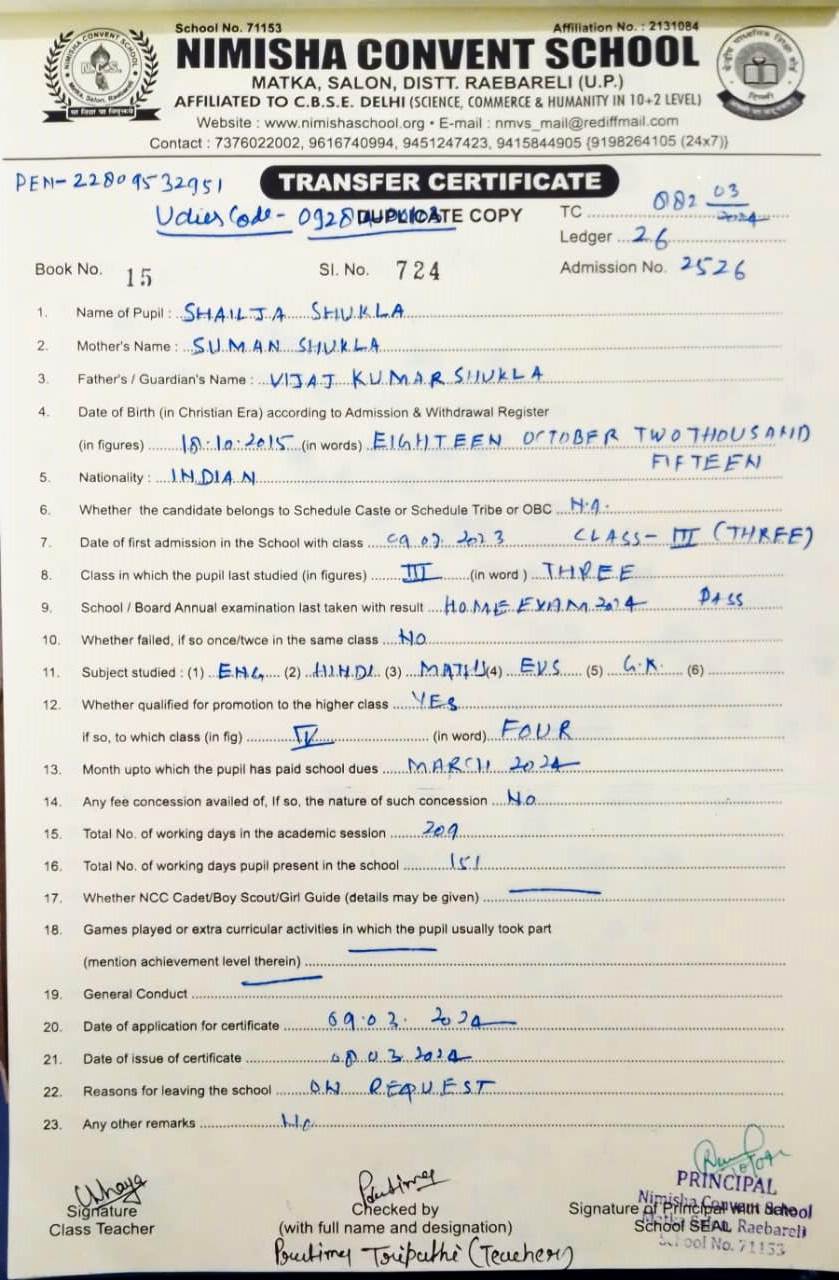 School No. 71153 Affiliation No. : 2131084
NIMISHA CONVENT SCHOOL
MATKA, SALON, DISTT. RAEBARELI (U.P.)
AFFILIATED TO C.B.S.E. DELHI (SCIENCE, COMMERCE & HUMANITY IN 10+2 LEVEL)
Website : www.nimishaschool.org • E-mail : nmvs_mail@rediffmail.com
Contact : 7376022002, 9616740994, 9451247423, 9415844905 {9198264105 (24x7)}
PEN-22809532951
TRANSFER CERTIFICATE
Udies Code- DUPLICATE COPY
TC 082 03
2024
Ledger 26
Book No. 15 Sl. No. 724 Admission No. 2526
1. Name of Pupil : SHAILJA SHUKLA
2. Mother's Name : SUMAN SHUKLA
3. Father's / Guardian's Name : VIJAJ KUMAR SHUKLA
4. Date of Birth (in Christian Era) according to Admission & Withdrawal Register
(in figures) 18.10.2015 (in words) EIGHTEEN OCTOBER TWO THOUSAND
FIFTEEN
5. Nationality : INDIAN
6. Whether the candidate belongs to Schedule Caste or Schedule Tribe or OBC N.A.
7. Date of first admission in the School with class 2023 CLASS- III (THREE)
8. Class in which the pupil last studied (in figures) III (in word ) THREE
9. School / Board Annual examination last taken with result HOME EXAM 2024 PASS
10. Whether failed, if so once/twce in the same class NO
11. Subject studied : (1) ENG (2) HINDI (3) MATH (4) EVS (5) G.K. (6)
12. Whether qualified for promotion to the higher class YES
if so, to which class (in fig) IV (in word) FOUR
13. Month upto which the pupil has paid school dues MARCH 2024
14. Any fee concession availed of, If so, the nature of such concession No
15. Total No. of working days in the academic session 209
16. Total No. of working days pupil present in the school 151
17. Whether NCC Cadet/Boy Scout/Girl Guide (details may be given)
18. Games played or extra curricular activities in which the pupil usually took part
(mention achievement level therein)
19. General Conduct
20. Date of application for certificate 09.03.2024
21. Date of issue of certificate 08.03.2024
22. Reasons for leaving the school ON REQUEST
23. Any other remarks No
Chhaya
Signature
Class Teacher
Checked by
(with full name and designation)
Tripathi (Teacher)
PRINCIPAL
Nimisha Convent School
Signature of Principal with date
School SEAL
Raebareli
School No. 71153